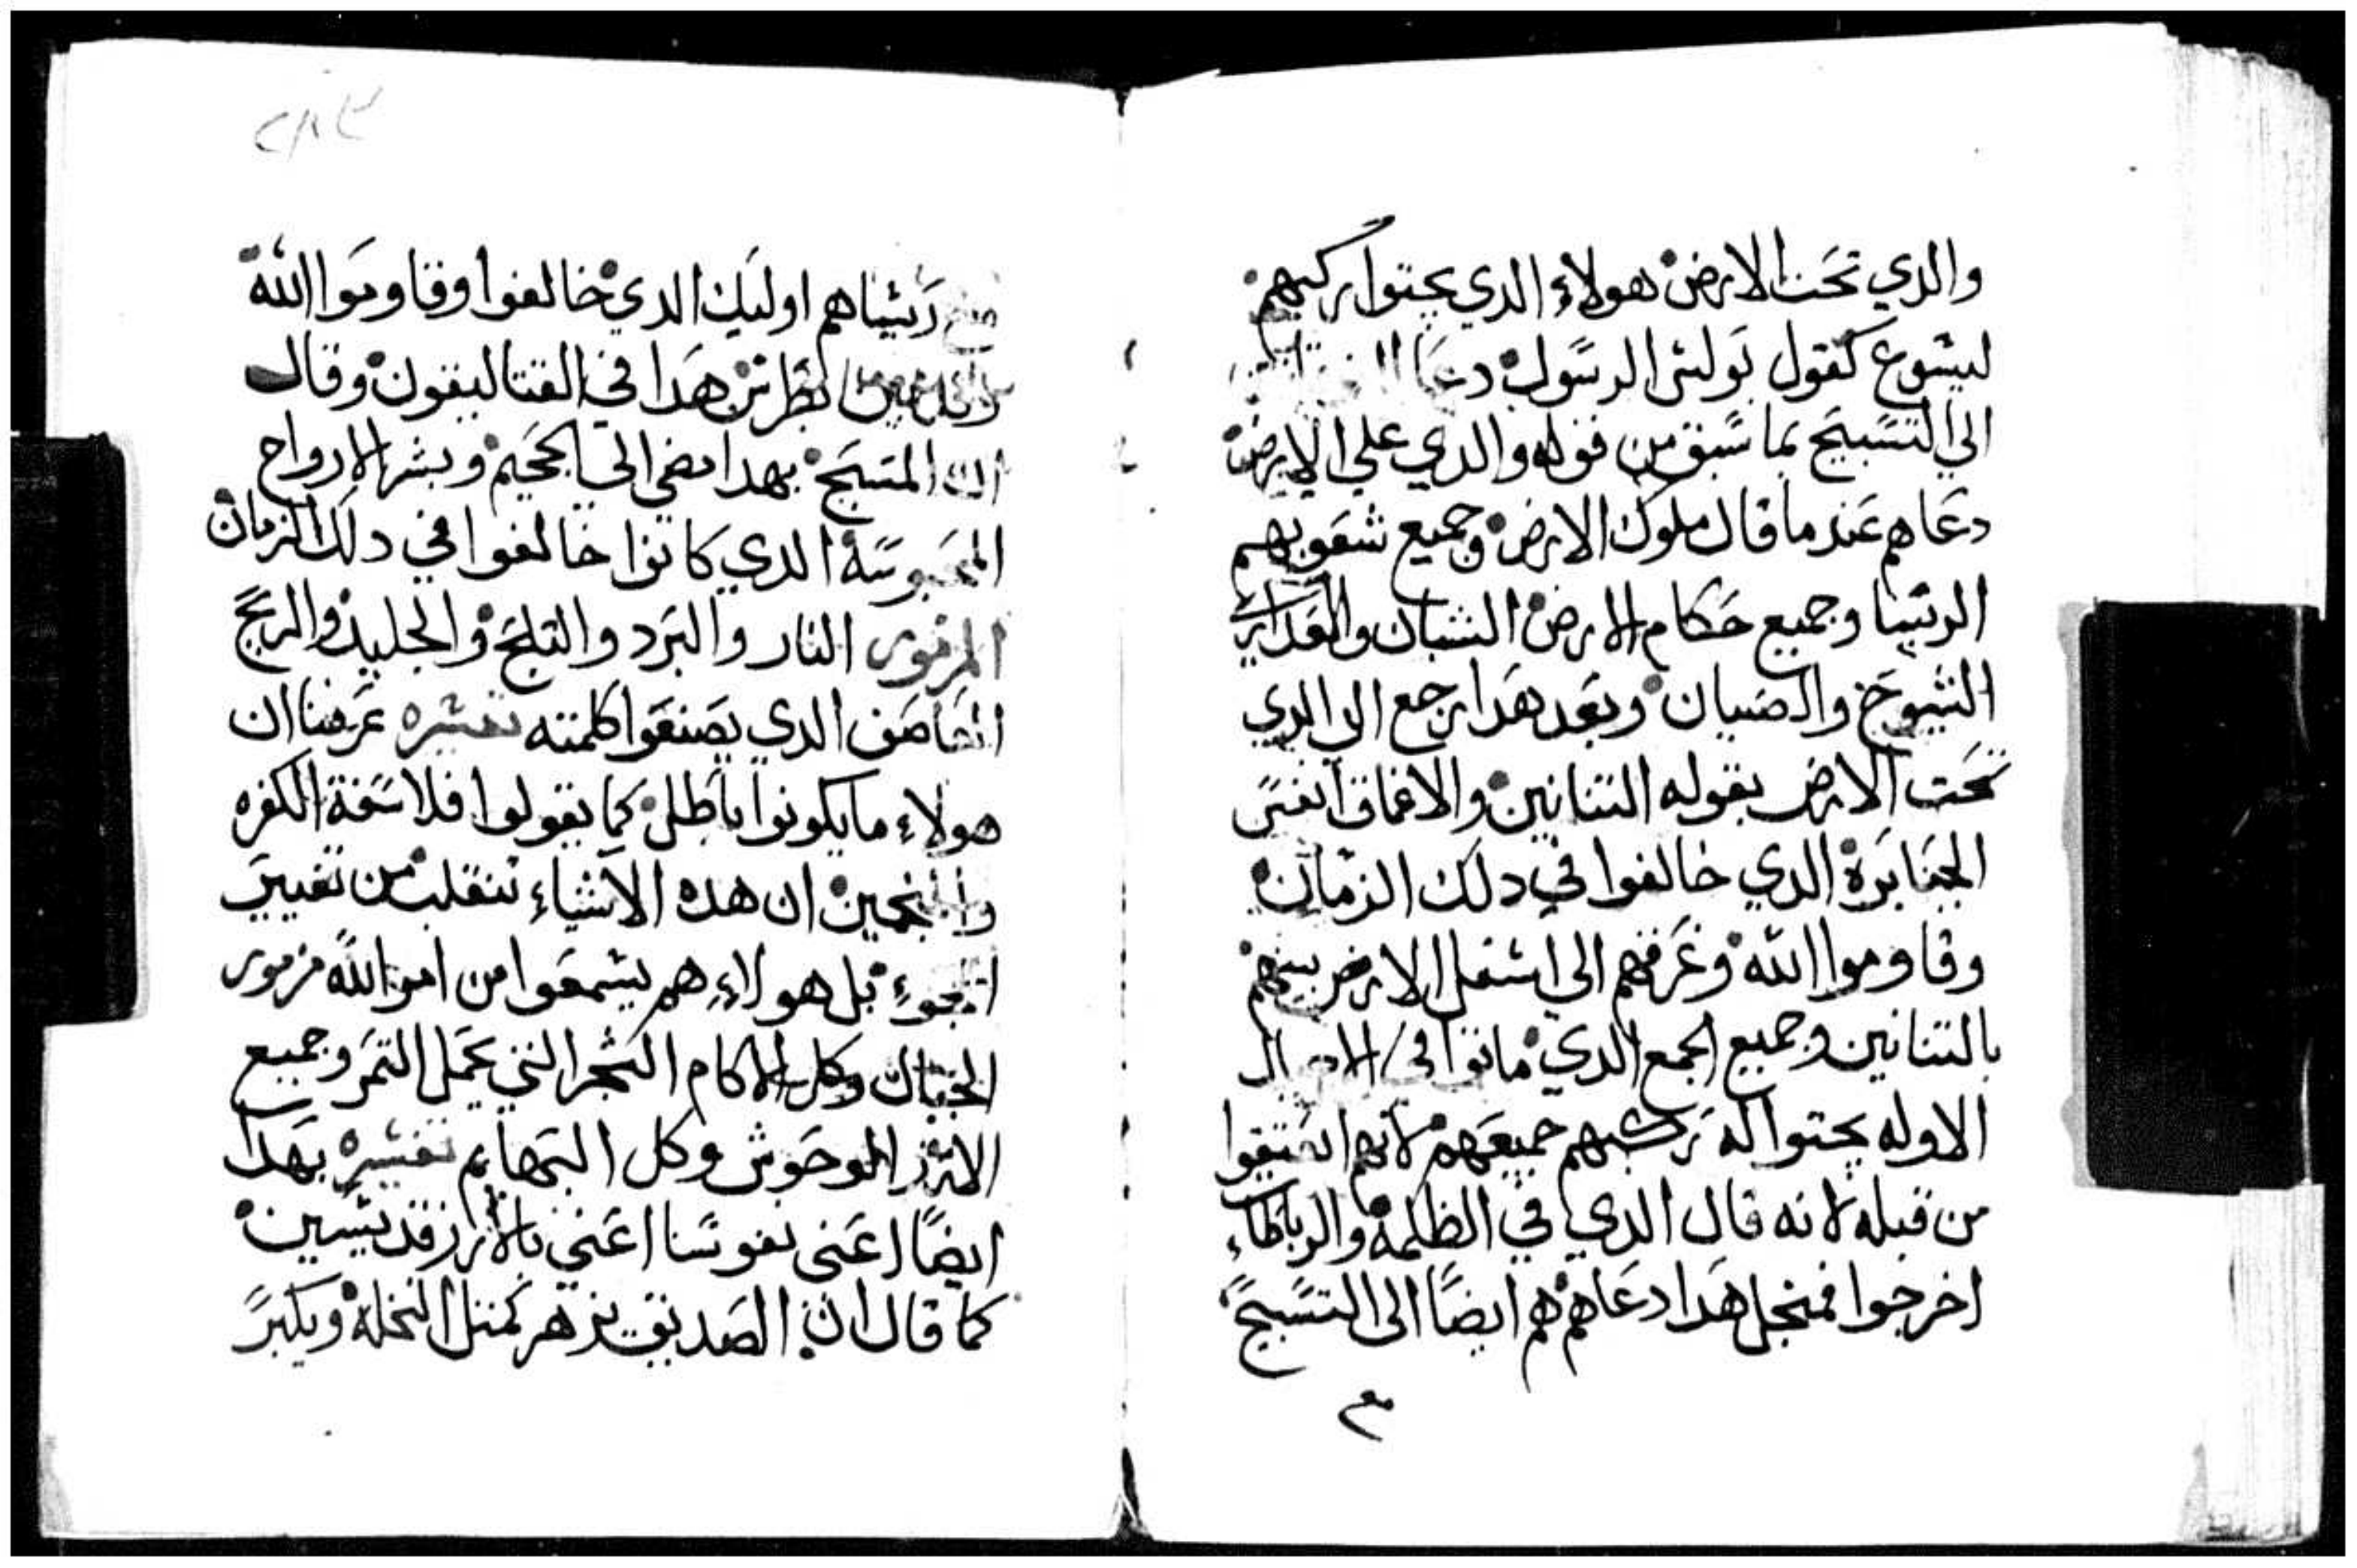 والدي تحت الارض هولاء الدي يجتوا ركبهم
ليشوع كقول بولش الرسول دعا
الي التسبيح بما سبق من قوله والدي علي الارض
دعاهم عند ما قال ملوك الارض وجميع شعوبهم
الريسا وجميع حكام الارض الشبان والعدارى
الشيوخ والصبيان وبعد هدا رجع الي الدي
تحت الارض بقوله التنانين والاعماق افسر
الجبابرة الدي خالفوا في دلك الزمان
وقاوموا الله وغرقهم الي اسفل الارض بينهم
بالتنانين وجميع الجمع الدي ماتوا في
الاوله يجتوا له بركبهم جميعهم لانهم اعتقوا
من قبله لانه قال الدي في الظلمة والرباطاء
اخرجوا فمنجل هدا دعاهم هم ايضا الي التسبيح
مع
٢٨٢
ريساهم اوليك الدي خالفوا وقاوموا الله
بطرس هدا في القتاليقون وقال
ان المسيح بهدا مضي الي الجحيم وبشر الارواح
المحبوسة الدي كانوا خالفوا في دلك الزمان
المزمور النار والبرد والتلج والجليد والريح
العاصف الدي يصنعوا كلمته تفسيره عرفنا ان
هولاء ما يكونوا باطل كما يقولوا فلاسفة الكفره
والمنجمين ان هده الاشياء تنقلب من تغيير
الجوء بل هولاء هم يسمعوا من امر الله مزمور
الجبال وكل الاكام الشجر التي تحمل التمر وجميع
الارز الوحوش وكل البهايم تفسيره بهدا
ايضا اعني نفوسنا اعني بالارز قديسين
كما قال ان الصديق يزهر كمتل النخلة ويكبر